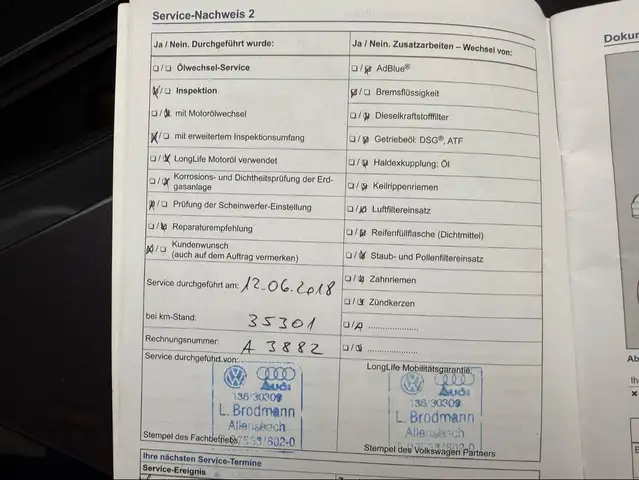 Service-Nachweis 2
Ja / Nein. Durchgeführt wurde:
Ja / Nein. Zusatzarbeiten – Wechsel von:
Ölwechsel-Service
AdBlue®
Inspektion
Bremsflüssigkeit
mit Motorölwechsel
Dieselkraftstofffilter
mit erweitertem Inspektionsumfang
Getriebeöl: DSG®, ATF
LongLife Motoröl verwendet
Haldexkupplung: Öl
Korrosions- und Dichtheitsprüfung der Erd-
gasanlage
Keilrippenriemen
Prüfung der Scheinwerfer-Einstellung
Luftfiltereinsatz
Reparaturempfehlung
Reifenfüllflasche (Dichtmittel)
Kundenwunsch
(auch auf dem Auftrag vermerken)
Staub- und Pollenfiltereinsatz
Service durchgeführt am: 12.06.2018
Zahnriemen
Zündkerzen
bei km-Stand: 35301
Rechnungsnummer: A 3882
Service durchgeführt von:
LongLife Mobilitätsgarantie:
Audi
136/30309
L. Brodmann
Allensbach
Stempel des Fachbetriebs
Audi
136/30309
L. Brodmann
Allensbach
Stempel des Volkswagen Partners
Ihre nächsten Service-Termine
Service-Ereignis
Dokum
Ab